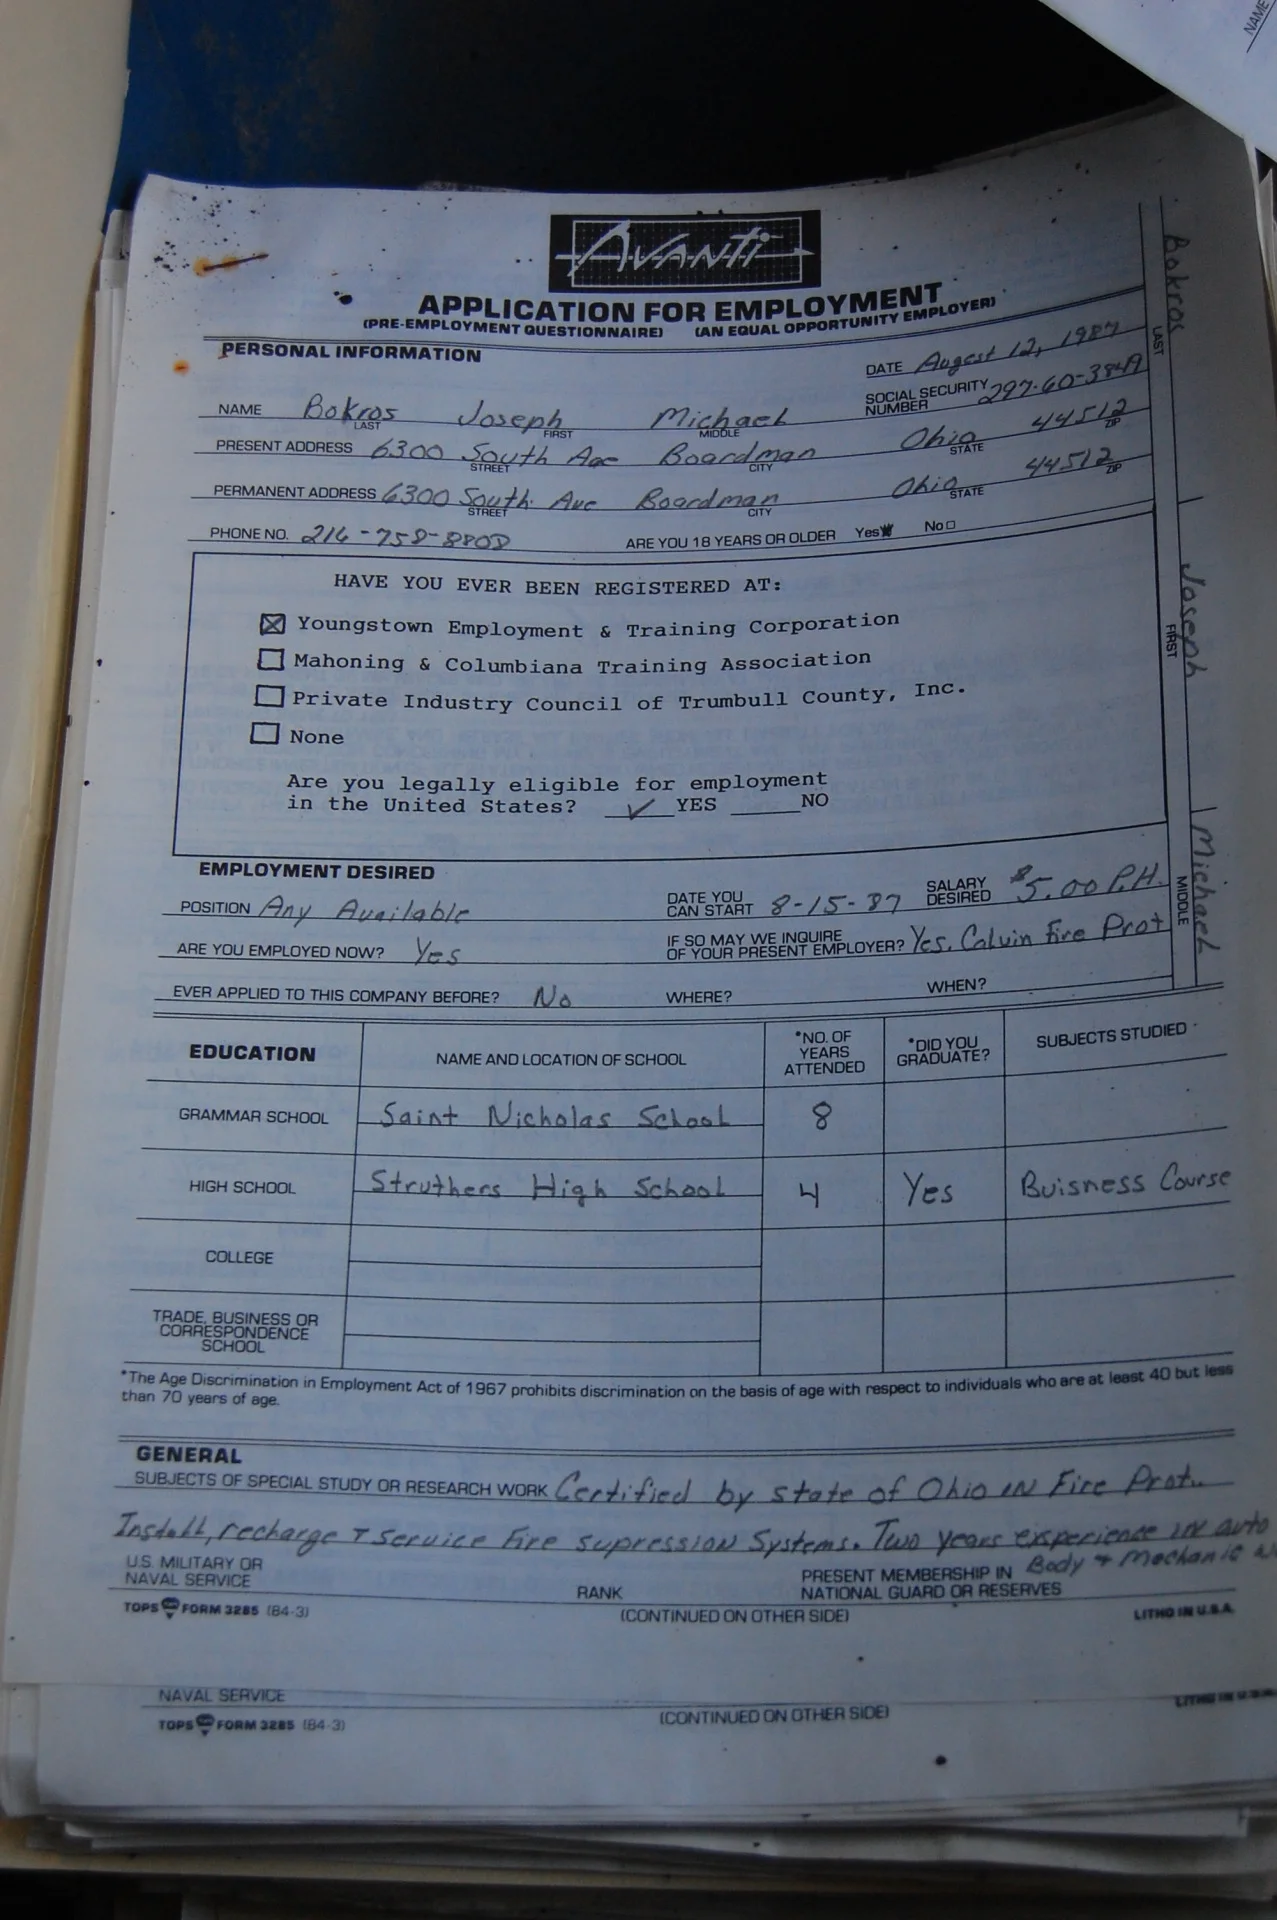 NAME
AVANTI
APPLICATION FOR EMPLOYMENT
(PRE-EMPLOYMENT QUESTIONNAIRE) (AN EQUAL OPPORTUNITY EMPLOYER)
PERSONAL INFORMATION
DATE August 12, 1987
SOCIAL SECURITY
NUMBER
NAME Bokros Joseph Michael
LAST FIRST MIDDLE
PRESENT ADDRESS 6300 South Ave Boardman Ohio 44512
STREET CITY STATE ZIP
PERMANENT ADDRESS 6300 South Ave Boardman Ohio 44512
STREET CITY STATE ZIP
PHONE NO. 216-758-8808 ARE YOU 18 YEARS OR OLDER Yes No
HAVE YOU EVER BEEN REGISTERED AT:
Youngstown Employment & Training Corporation
Mahoning & Columbiana Training Association
Private Industry Council of Trumbull County, Inc.
None
Are you legally eligible for employment
in the United States? ✓ YES NO
EMPLOYMENT DESIRED
POSITION Any Available
DATE YOU
CAN START 8-15-87
SALARY
DESIRED $5.00 P.H.
ARE YOU EMPLOYED NOW? Yes
IF SO MAY WE INQUIRE
OF YOUR PRESENT EMPLOYER? Yes. Calvin Fire Prot
EVER APPLIED TO THIS COMPANY BEFORE? No WHERE? WHEN?
Bokros Joseph Michael
LAST FIRST MIDDLE
EDUCATION
NAME AND LOCATION OF SCHOOL
*NO. OF
YEARS
ATTENDED
*DID YOU
GRADUATE?
SUBJECTS STUDIED
GRAMMAR SCHOOL Saint Nicholas School 8
HIGH SCHOOL Struthers High School 4 Yes Buisness Course
COLLEGE
TRADE, BUSINESS OR
CORRESPONDENCE
SCHOOL
*The Age Discrimination in Employment Act of 1967 prohibits discrimination on the basis of age with respect to individuals who are at least 40 but less
than 70 years of age.
GENERAL
SUBJECTS OF SPECIAL STUDY OR RESEARCH WORK Certified by state of Ohio in Fire Prot..
Install, recharge + service Fire supression Systems. Two years experience in auto
Body + Mechanic
U.S. MILITARY OR
NAVAL SERVICE
RANK
PRESENT MEMBERSHIP IN
NATIONAL GUARD OR RESERVES
TOPS FORM 3285 (84-3) (CONTINUED ON OTHER SIDE) LITHO IN U.S.A.
NAVAL SERVICE
TOPS FORM 3285 (84-3) (CONTINUED ON OTHER SIDE) LITHO IN U.S.A.